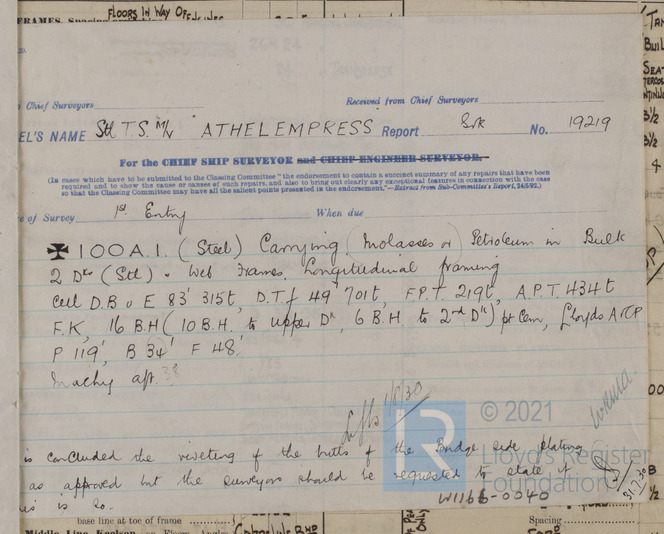 FRAMES, Spacing
FLOORS IN WAY OF ENGINES
Chief Surveyors
Received from Chief Surveyors
EL'S NAME Stl T.S. M/V ATHELEMPRESS Report Srk No. 19219
For the CHIEF SHIP SURVEYOR and CHIEF ENGINEER SURVEYOR.
(In cases which have to be submitted to the Classing Committee "the endorsement to contain a succinct summary of any repairs that have been
required and to show the cause or causes of such repairs, and also to bring out clearly any exceptional features in connection with the case
so that the Classing Committee may have all the salient points presented in the endorsement."—Extract from Sub-Committee's Report, 24/5/92.)
e of Survey 1st Entry When due
✠ 100A.1. (Steel) Carrying (Molasses or) Petroleum in Bulk
2 Dks (Stl) Web Frames. Longitudinal framing
Cell D.B u E 83' 315t, D.T.f 49' 701t, F.P.T. 219t, A.P.T. 434t
F.K, 16 B.H (10 B.H. to upper Dk, 6 B.H to 2nd Dk) pt Cem, Lloyds A&CP
P 119', B 34' F 48'
Machy aft. 38
1/8/30
© 2021
Lloyd's Register
Foundation
is concluded the riveting of the butts of the Bridge side plating
as approved but the surveyors should be requested to state if
is is so.
31.7.30
W1166-0040
base line at toe of frame
Spacing
Middle Line Keelson,